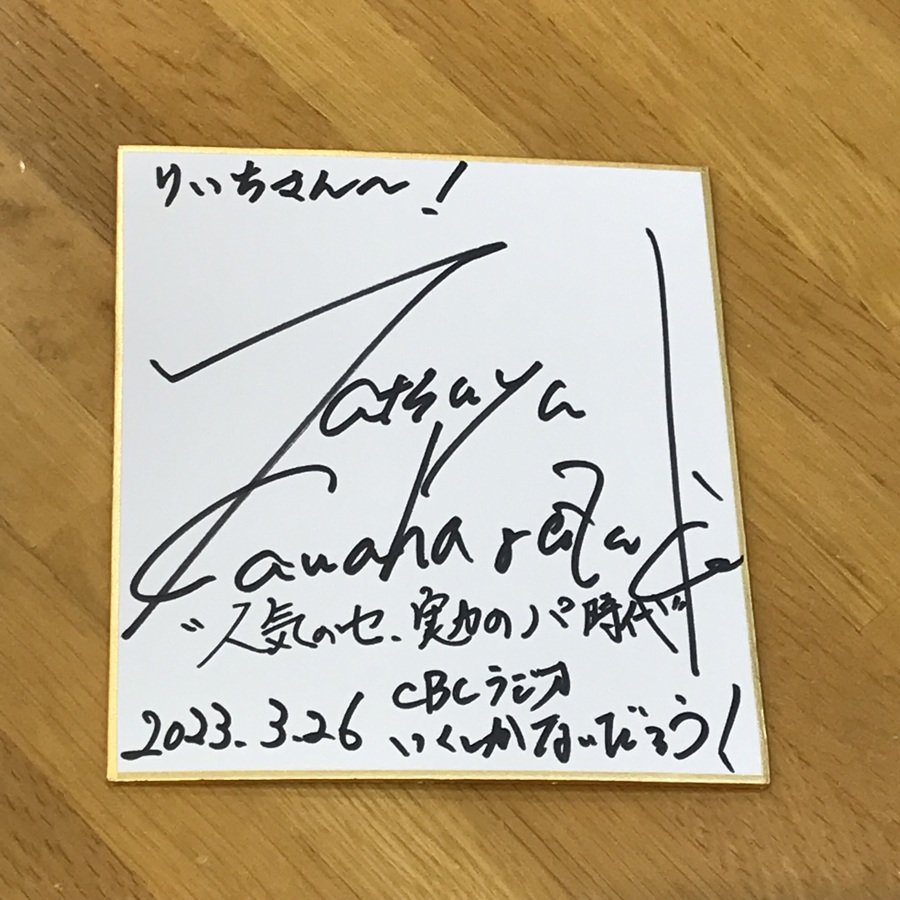 りいちさん〜!
Tatsuya
"人気のセ、実力のパ時代"
2023.3.26
CBCラジオ
いくしかないだろう!